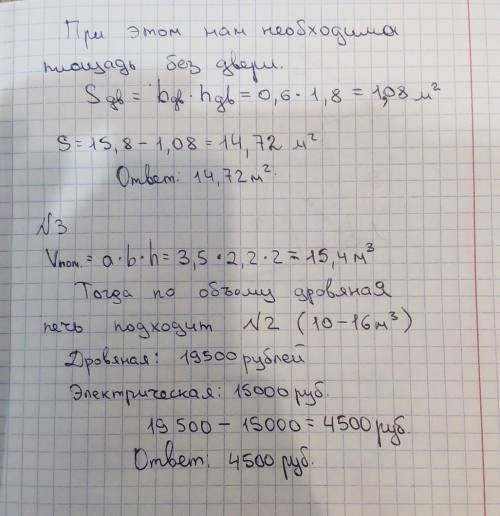 При этом нам необходима
площадь без двери.
Sдв = bдв · hдв = 0,6 · 1,8 = 1,08 м²
S = 15,8 - 1,08 = 14,72 м²
Ответ: 14,72 м².
N3
Vпом. = a · b · h = 3,5 · 2,2 · 2 = 15,4 м³
Тогда по объёму дровяная
печь подходит N2 (10-16 м³)
Дровяная: 19500 рублей
Электрическая: 15000 руб.
19 500 - 15000 = 4500 руб.
Ответ: 4500 руб.